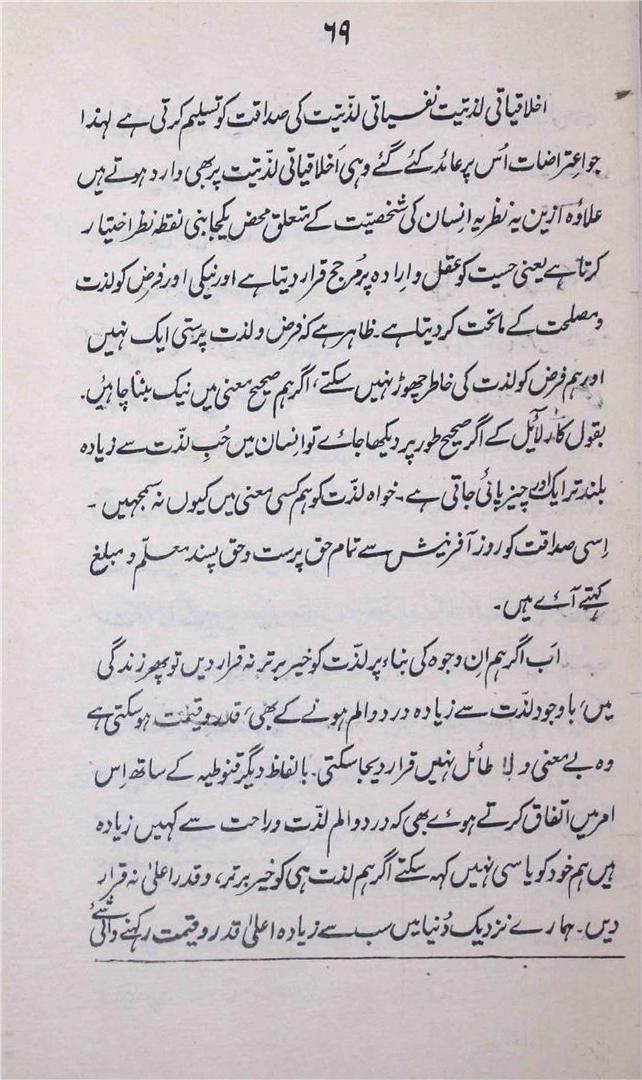 ۶۹
اخلاقیاتی لذتیت نفسیاتی لذّتیت کی صداقت کو تسلیم کرتی ہے لہذا
جو اعتراضات اُس پر عائد کئے گئے وہی اَخلاقیاتی لذّتیت پر بھی وارد ہوتے ہیں
علاوہ ازین یہ نظریہ اِنسان کی شخصیّت کے متعلق محض یکجا بنی نقطہ نظر اختیار
کرتا ہے یعنی حسیت کو عقل و اِرادہ پر مُرجح قرار دیتا ہے اور نیکی اور فرض کو لذت
و مصلحت کے ماتحت کر دیتا ہے۔ ظاہر ہے کہ فرض و لذت پرستی ایک نہیں
اور ہم فرض کو لذت کی خاطر چھوڑ نہیں سکتے، اگر ہم صحیح معنی میں نیک بننا چاہیں۔
بقول کارلائل کے اگر صحیح طور پر دیکھا جائے تو انسان میں حُبِ لذّت سے زیادہ
بلند تر ایک اور چیز پائی جاتی ہے۔ خواہ لذّت کو ہم کسی معنی میں کیوں نہ سمجھیں ۔
اِسی صداقت کو روز آفرنیش سے تمام حق پرست و حق پسند معلّم و مبلغ
کہتے آئے ہیں۔
اَب اگر ہم اِن وجوہ کی بناء پر لذّت کو خیر برتر نہ قرار دیں تو پھر زندگی
میں، باوجود لذّت سے زیادہ درد و الم ہونے کے بھی، قدر و قیمت ہو سکتی ہے
وہ بے معنی و لا طائل نہیں قرار دیجا سکتی۔ بالفاظ دیگر قنوطیہ کے ساتھ اِس
امر میں اتفاق کرتے ہوئے بھی کہ درد و الم لذّت و راحت سے کہیں زیادہ
ہیں ہم خود کو یاسی نہیں کہہ سکتے اگر ہم لذت ہی کو خیر برتر، و قدر اعلیٰ نہ قرار
دیں۔ ہمارے نزدیک دُنیا میں سب سے زیادہ اعلیٰ قدر و قیمت رکہنے والی شے